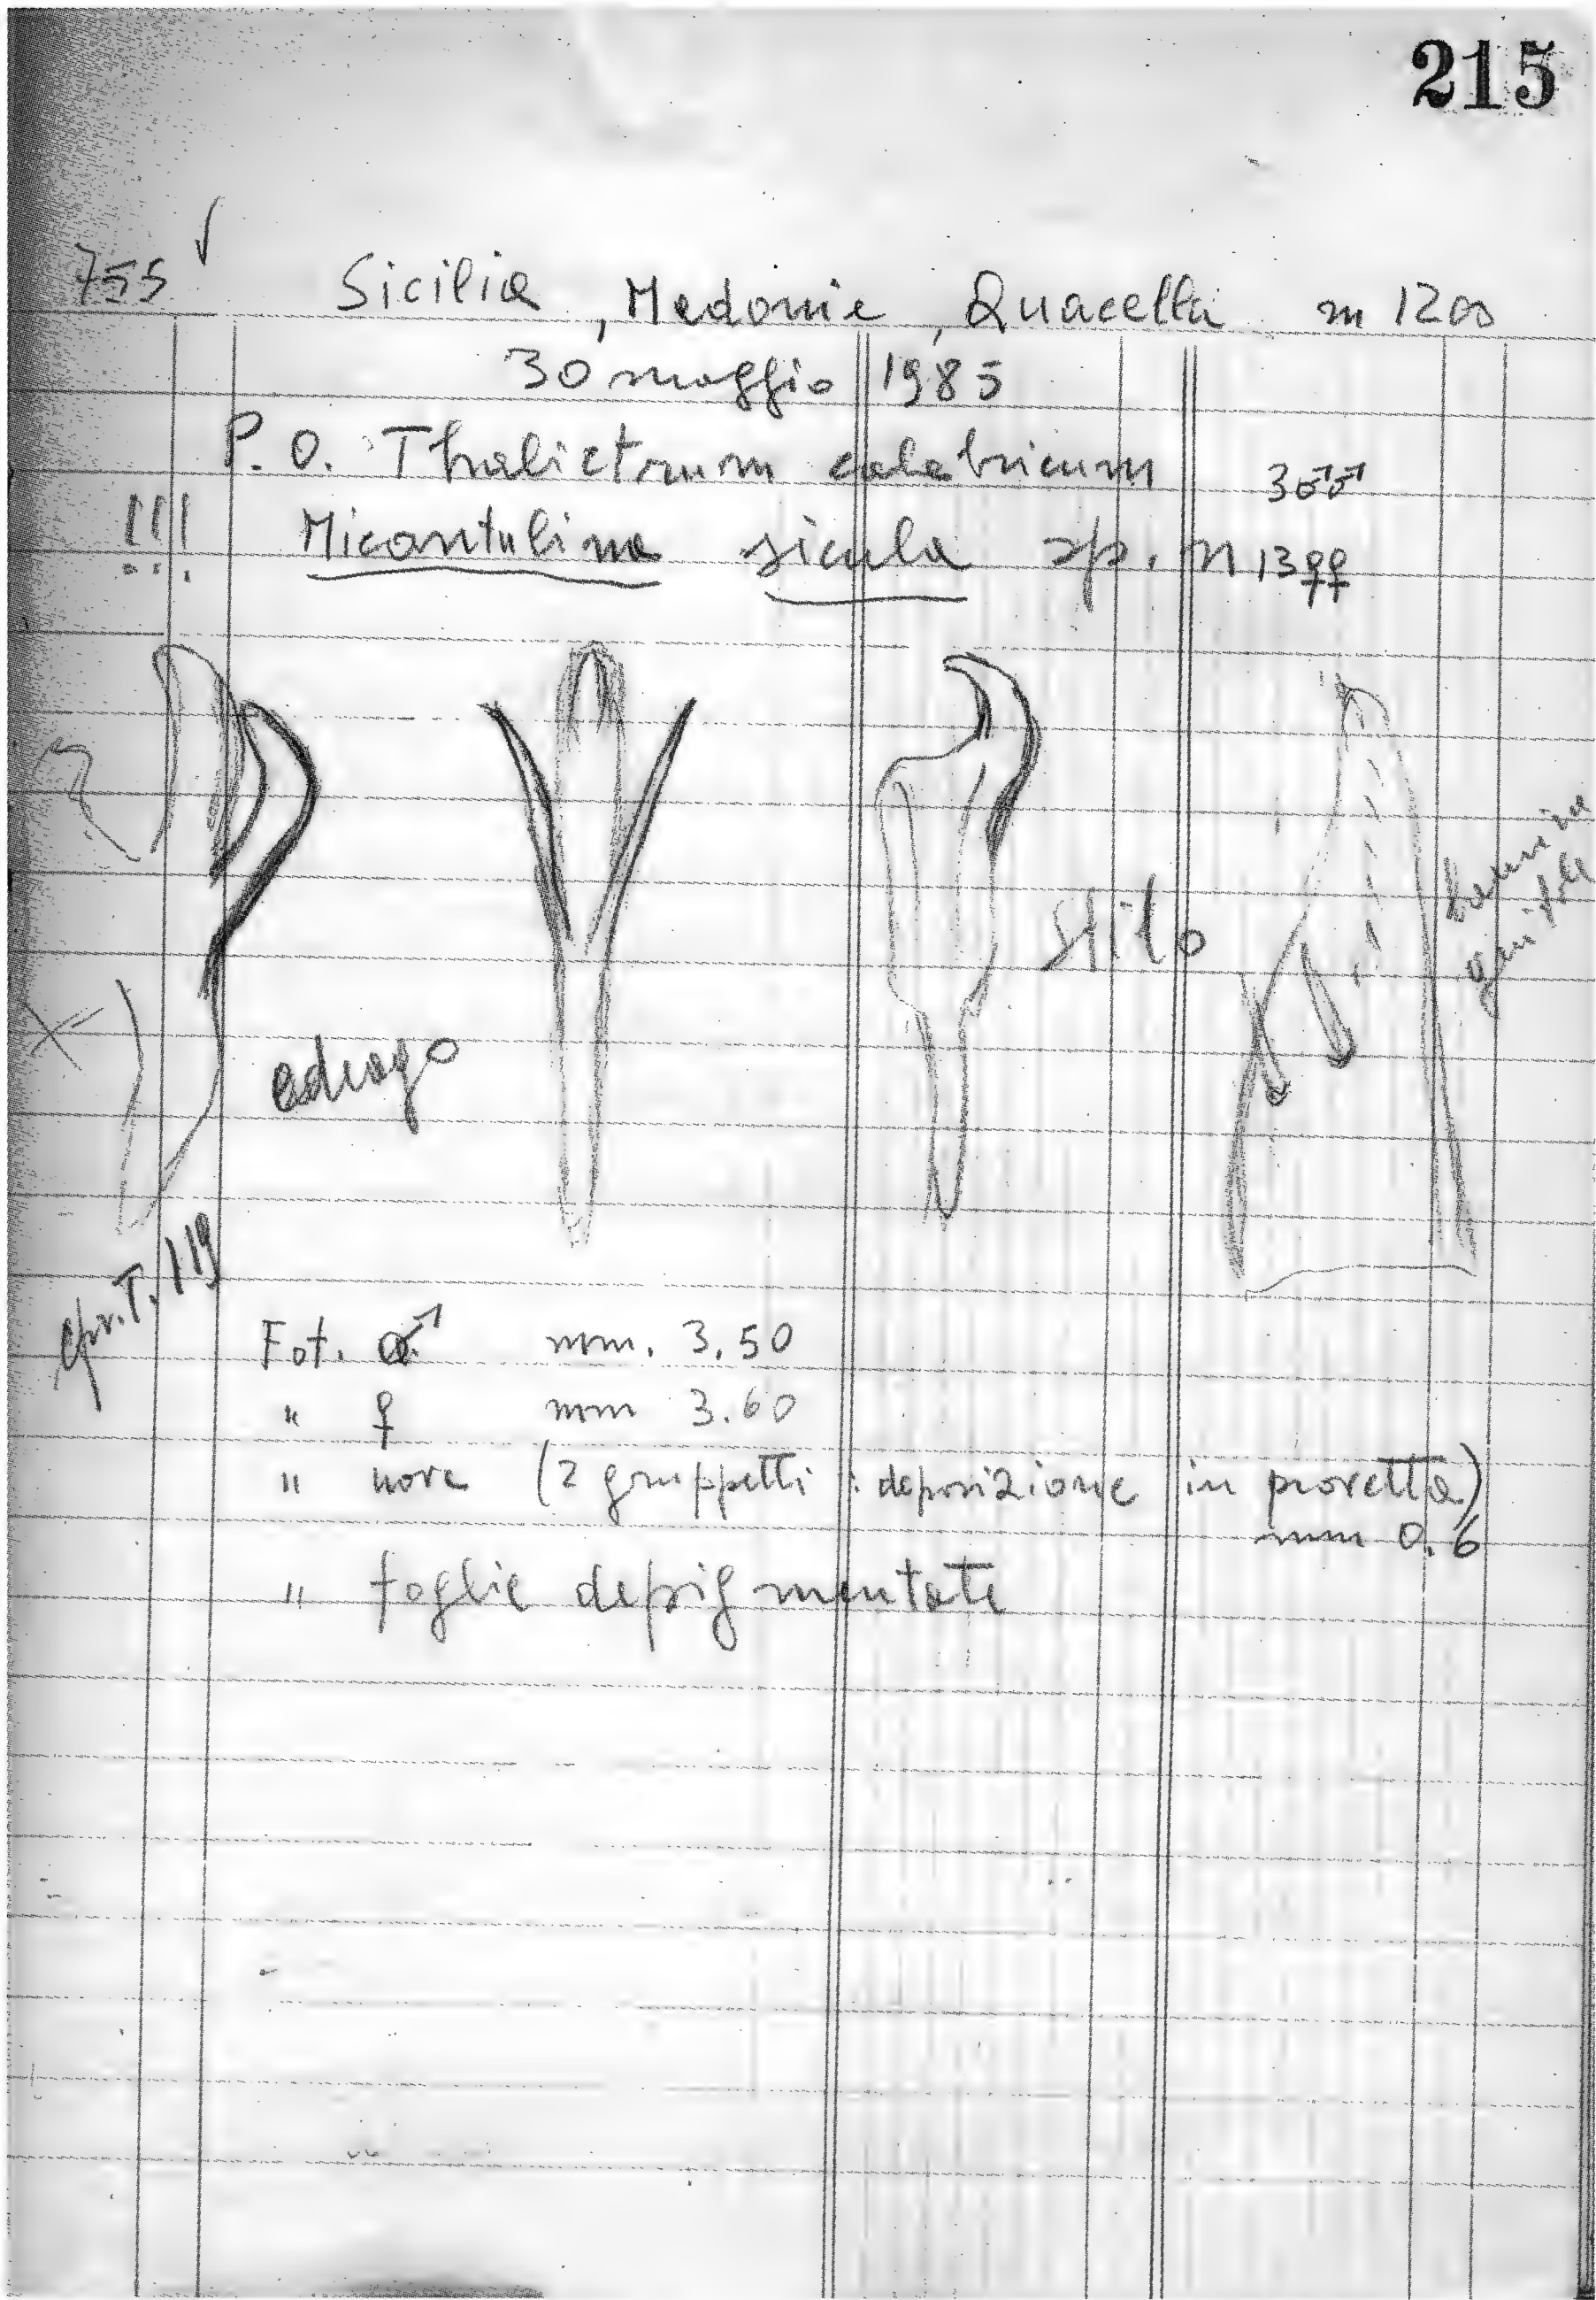 215
755
Sicilia, Madonie, Quacella m 1200
30 maggio 1985
P. O. Thalictrum calabricum 3♂♂
!!! Micantulina sicula sp. n 13♀♀
edeago
stilo
lamine
genitale
cfr. T. 119
Fot. ♂ mm. 3.50
" ♀ mm 3.60
" uova (2 gruppetti : deposizione in provetta)
mm 0.6
" foglie depigmentate